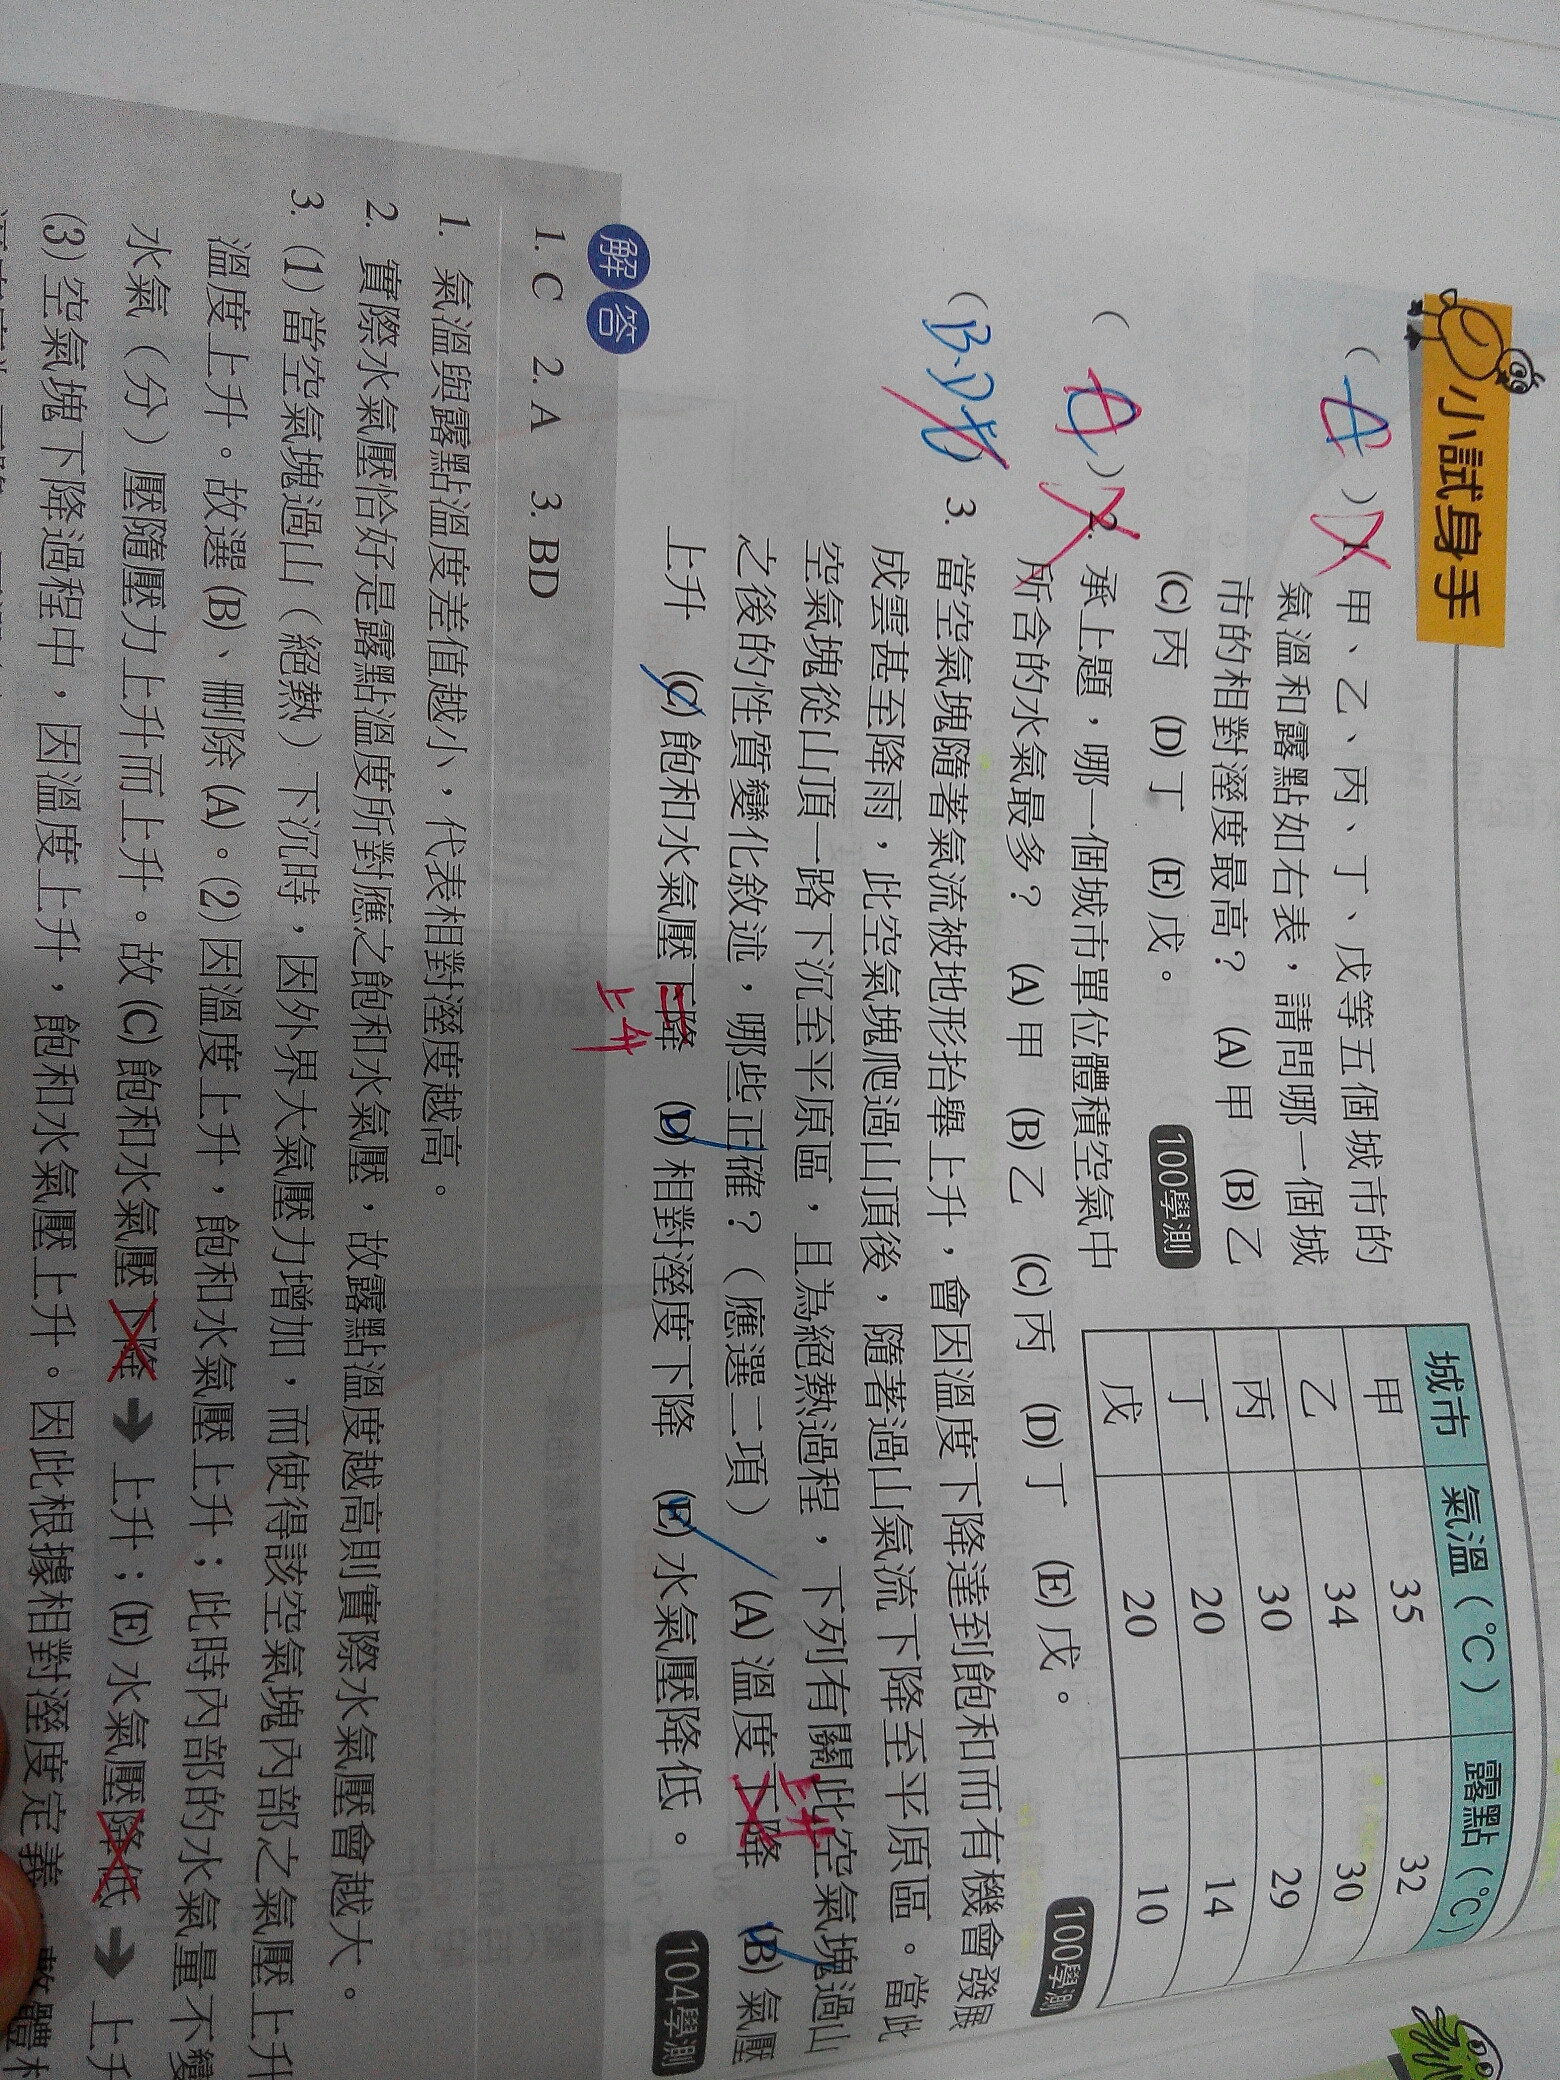 小試身手
(A)1. 甲、乙、丙、丁、戊等五個城市的
氣溫和露點如右表，請問哪一個城
市的相對溼度最高？ (A)甲 (B)乙
(C)丙 (D)丁 (E)戊。 100學測
城市 氣溫（℃） 露點（℃）
甲 35 32
乙 34 30
丙 30 29
丁 20 14
戊 20 10
(A)2. 承上題，哪一個城市單位體積空氣中
所含的水氣最多？ (A)甲 (B)乙 (C)丙 (D)丁 (E)戊。 100學測
(B、D 3. 當空氣塊隨著氣流被地形抬舉上升，會因溫度下降達到飽和而有機會發展
成雲甚至降雨，此空氣塊爬過山頂後，隨著過山氣流下降至平原區。當此
空氣塊從山頂一路下沉至平原區，且為絕熱過程，下列有關此空氣塊過山
之後的性質變化敘述，哪些正確？（應選二項） (A)溫度下降 (B)氣壓
上升
上升 (C)飽和水氣壓下降 (D)相對溼度下降 (E)水氣壓降低。 104學測
上升
解答
1. C 2. A 3. BD
1. 氣溫與露點溫度差值越小，代表相對溼度越高。
2. 實際水氣壓恰好是露點溫度所對應之飽和水氣壓，故露點溫度越高則實際水氣壓會越大。
3. (1)當空氣塊過山（絕熱）下沉時，因外界大氣壓力增加，而使得該空氣塊內部之氣壓上升
溫度上升。故選(B)、刪除(A)。(2)因溫度上升，飽和水氣壓上升；此時內部的水氣量不變
水氣（分）壓隨壓力上升而上升。故(C)飽和水氣壓下降➔上升；(E)水氣壓降低➔上升
(3)空氣塊下降過程中，因溫度上升，飽和水氣壓上升。因此根據相對溼度定義